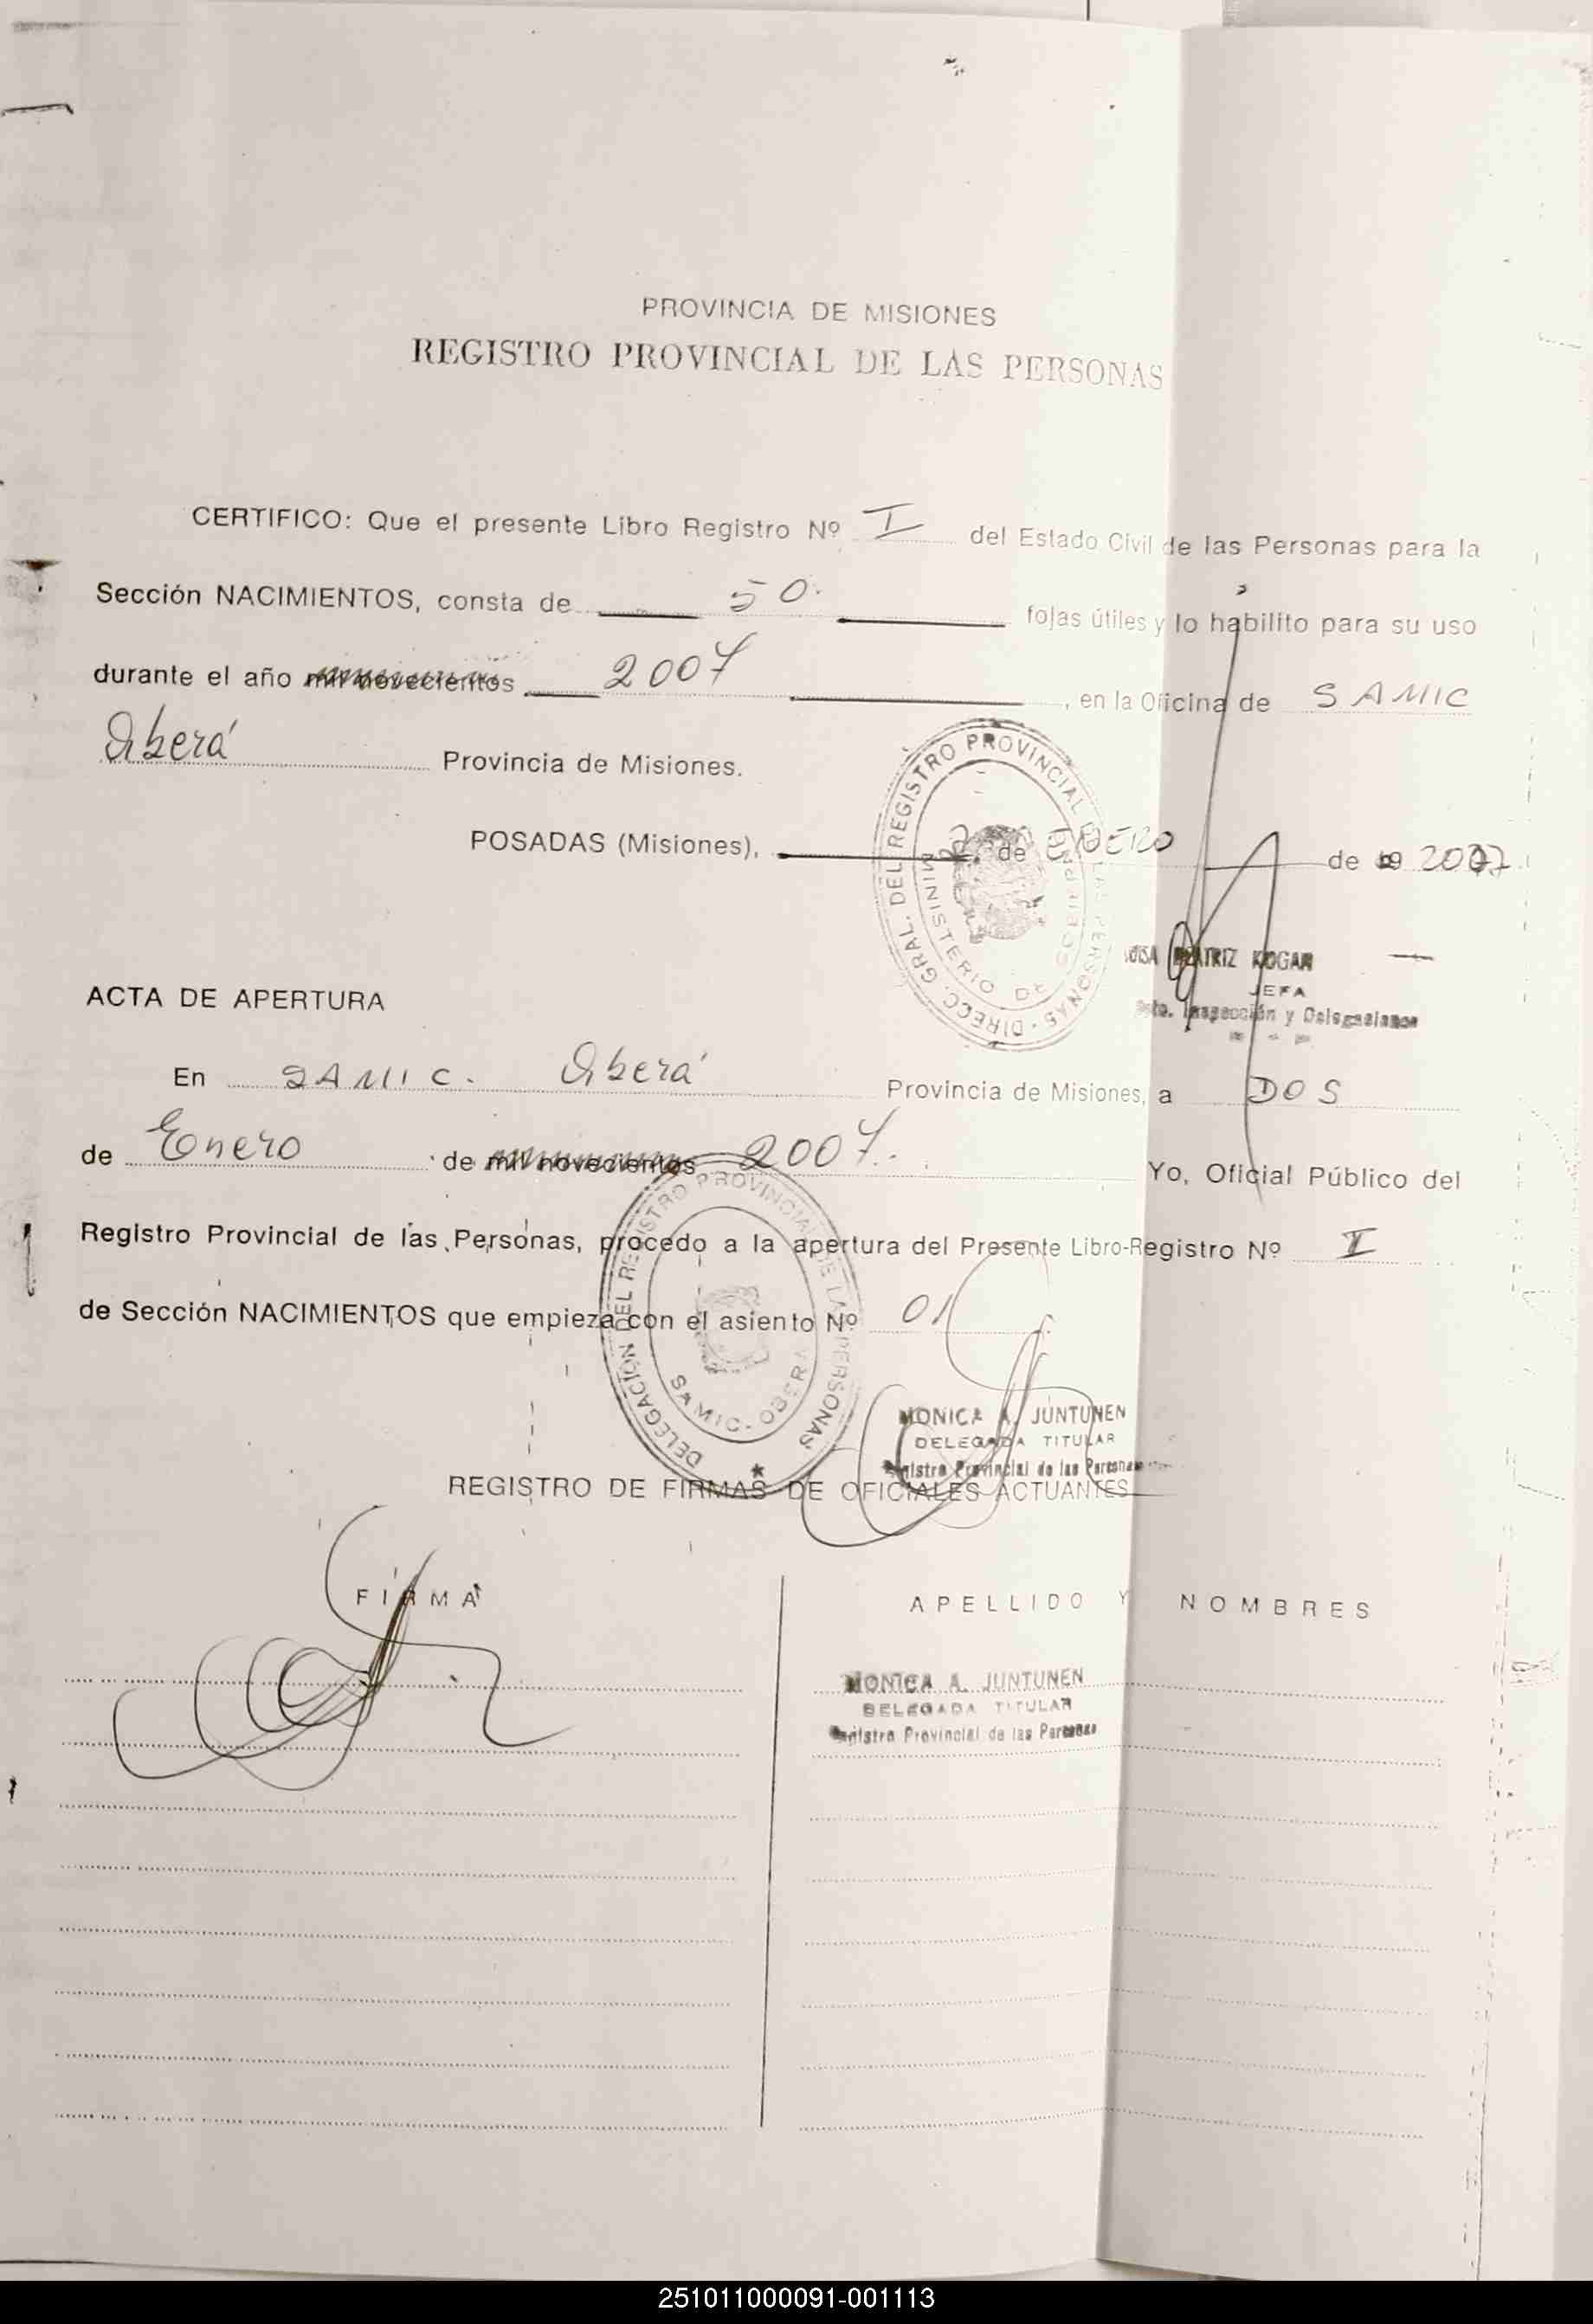 PROVINCIA DE MISIONES
REGISTRO PROVINCIAL DE LAS PERSONAS
CERTIFICO: Que el presente Libro Registro Nº I del Estado Civil de las Personas para la
Sección NACIMIENTOS, consta de 50. fojas útiles y lo habilito para su uso
durante el año mil novecientos 2007, en la Oficina de SAMIC
Oberá Provincia de Misiones.
POSADAS (Misiones), 02 de ENERO de 19 2007
BEATRIZ KOGAR
JEFA
Dto. Inspección y Delegaciones
DIRECC. GRAL. DEL REGISTRO PROVINCIAL DE LAS PERSONAS
MINISTERIO DE
ACTA DE APERTURA
En SAMIC. Oberá Provincia de Misiones, a DOS
de Enero de mil novecientos 2007. Yo, Oficial Público del
Registro Provincial de las Personas, procedo a la apertura del Presente Libro-Registro Nº I
de Sección NACIMIENTOS que empieza con el asiento Nº 01
DELEGACION DEL REGISTRO PROVINCIAL DE LAS PERSONAS
SAMIC - OBERA
MONICA A. JUNTUNEN
DELEGADA TITULAR
Registro Provincial de las Personas
REGISTRO DE FIRMAS DE OFICIALES ACTUANTES
FIRMA APELLIDO Y NOMBRES
MONICA A. JUNTUNEN
DELEGADA TITULAR
Registro Provincial de las Personas
251011000091-001113